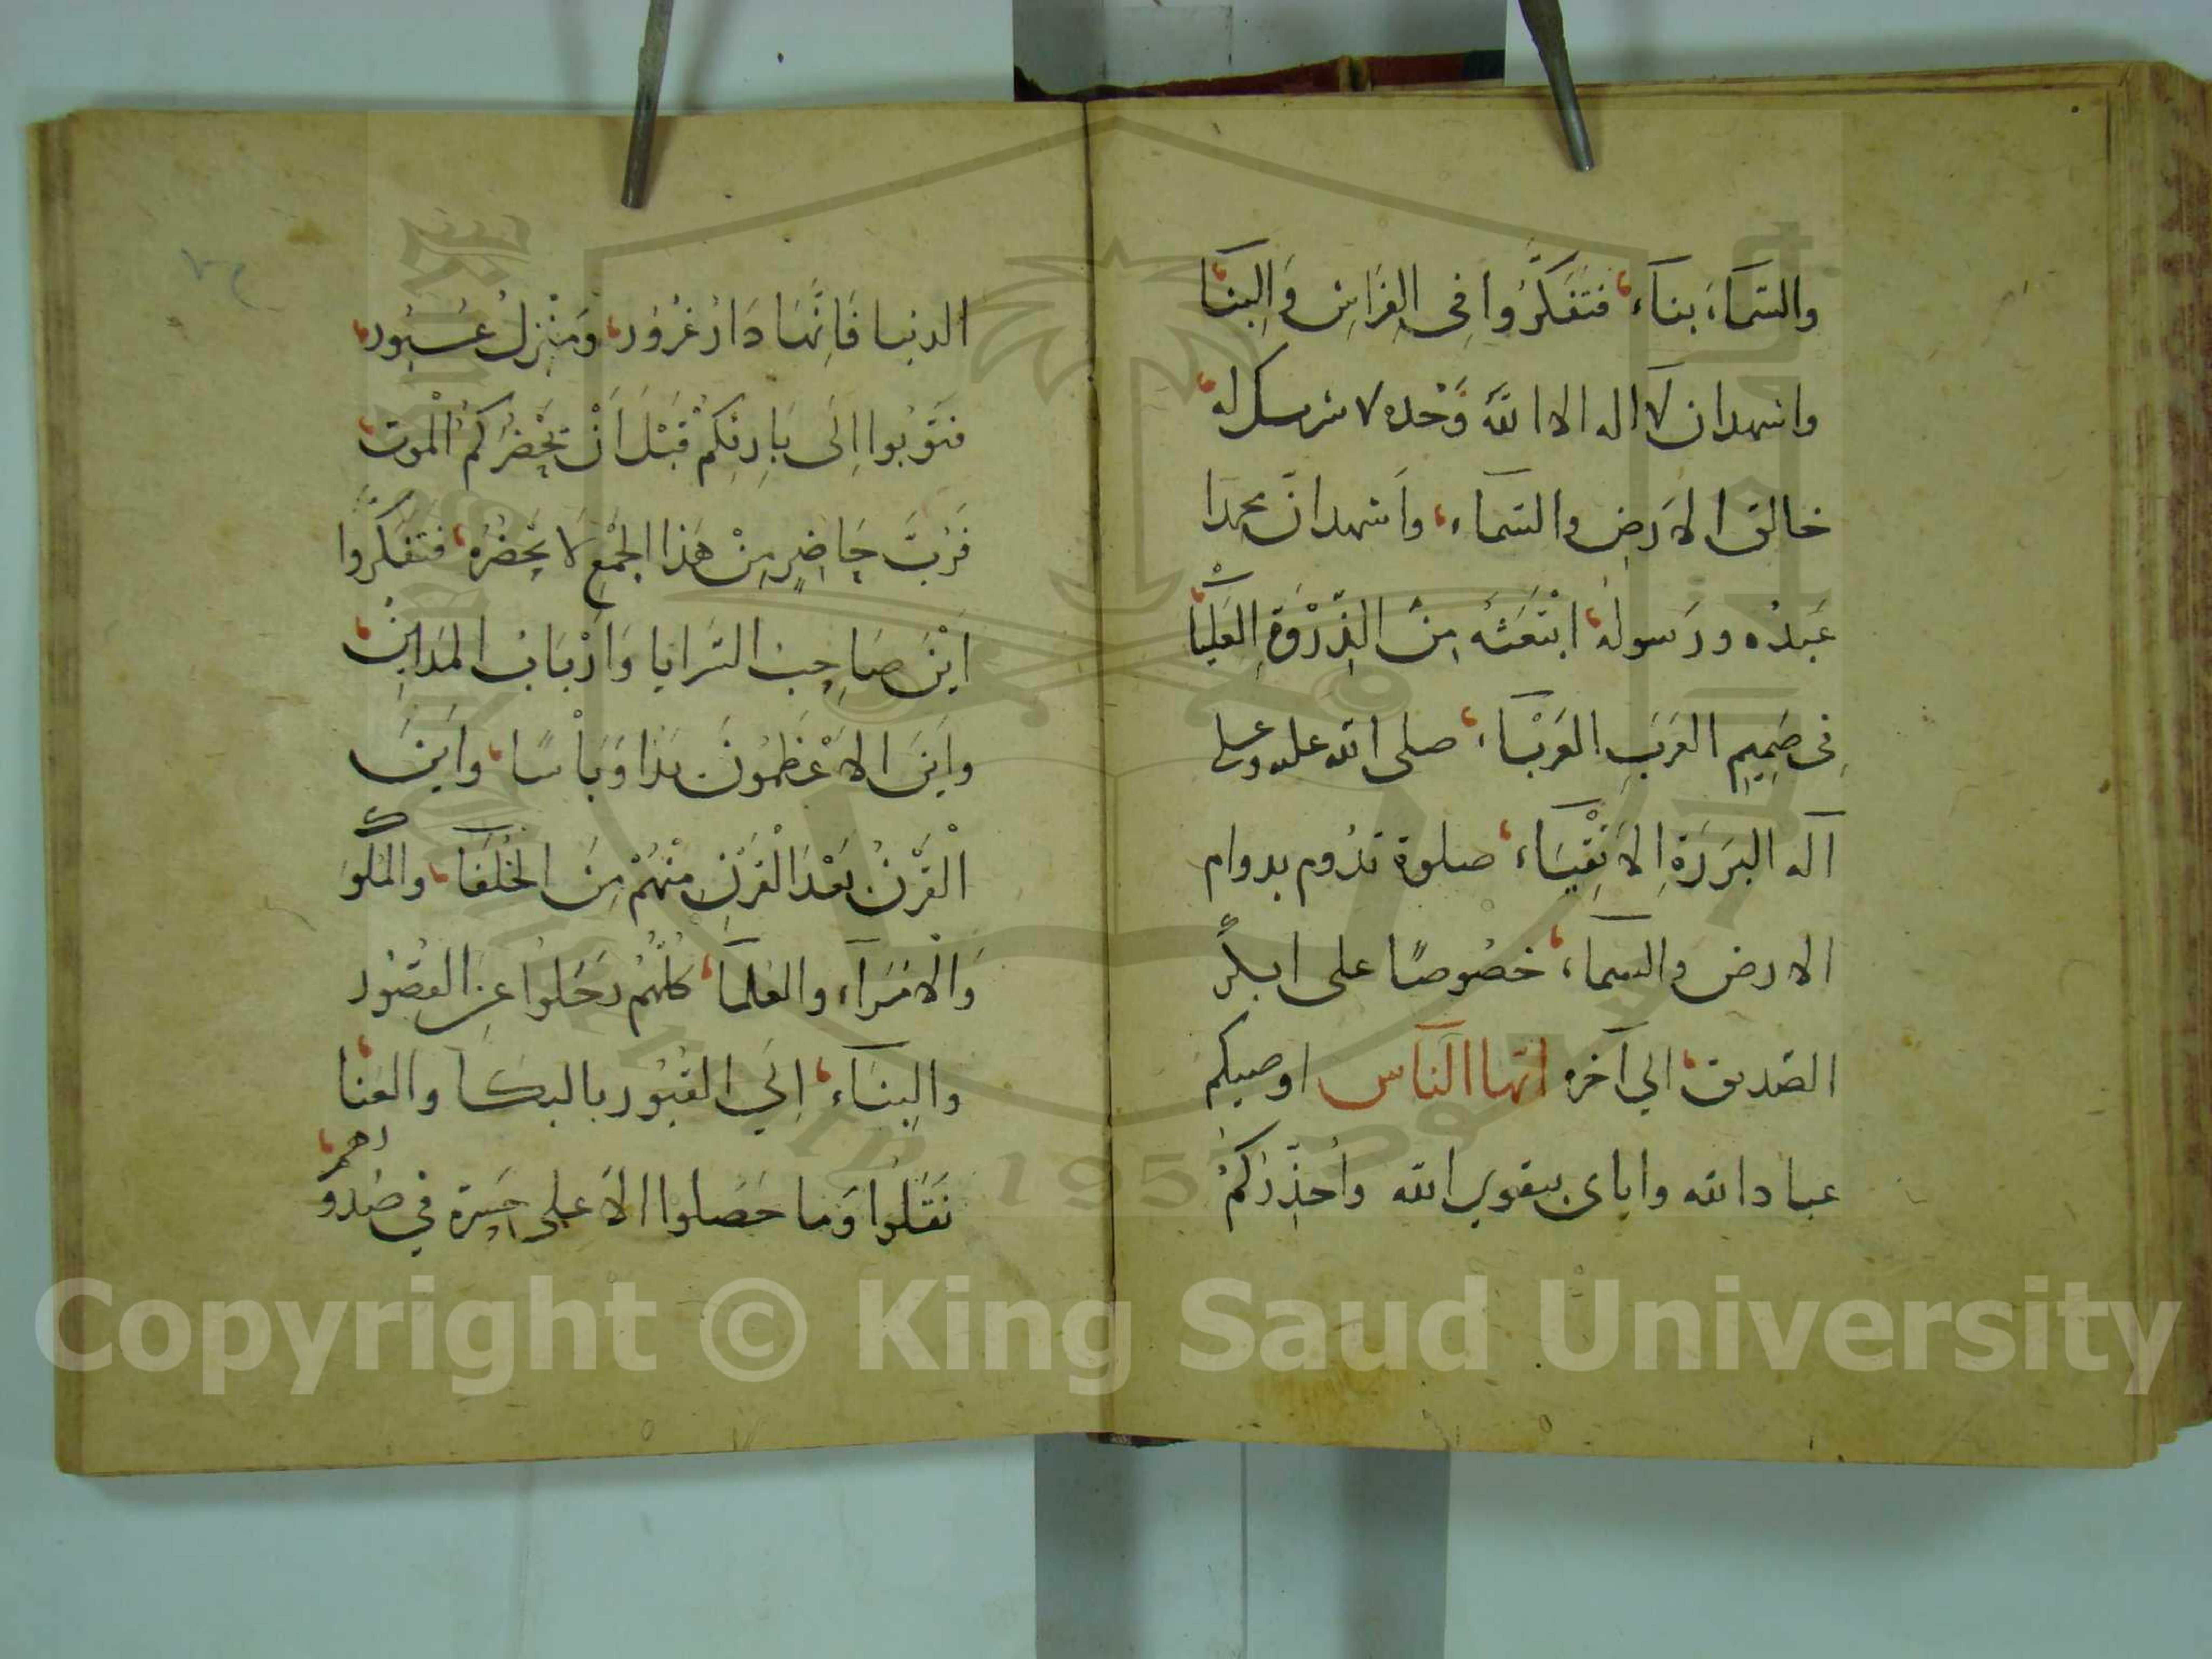 والسَّمَآءَ بنآءً، فتَفَكَّرُوا فِى الفِرَاشِ وَالبِنَآ،
واشهدان لآ اله الا اللّٰه وَحْدَه لا شرىك له،
خالق الاَرضِ والسّمآء، واَشهد انّ محمدا
عَبدُه ورَسولهُ، ابْتَعَثَه مِنَ الذِّرْوَةِ العَلْيَآ،
فِى صَمِيمِ العَرَبِ العَرْبَآء، صلى الله علىه وعلى
آله البَرَرَةِ الاَتْقِيَآء، صلوة تدُوم بدوام
الارض والسمآء، خصُوصًا على ابىكرٍ
الصّديق، الي آخره ايّها النَّاس اوصيكم
عباد الله واياى بتقوي الله وأحَذِّركُمْ
الدنيا فَاِنَّهَا دَارُ غُرُور، وَمَنْزِلُ عُبُور،
فتَوُبُوا اِلَى بَارِئِكُمْ قَبْلَ اَنْ يَحْضُرَكُمُ الْمَوت،
فَرُبَّ حَاضِرٍ مِنْ هَذا الجَمْعِ لَا يَحْضُرُه، فتَفَكَّرُوا
اَيْنَ صَاحِبُ السَّرايا وَاَرْبَابُ المَدَاينِ،
وَاَيَنَ الاَعْظَمُونَ يَدًا وَبَأْسًا، واَينَ
الْقَرْنُ بَعْدَ الْقَرْنِ مِنْهُمْ مِنَ الخُلَفَآ، والمُلُوك
وَالْاُمَرَآء والعُلمَآ، كُلّهُمْ رَحَلُوا عَنِ القُصُور
والبِنَآء، اِلَي القُبُور بالبكآ والعَنَا،
نَقَلُوا وَما حَصَلوا الاّ على حَسْرة في صُدُورهم،
Copyright © King Saud University
1957